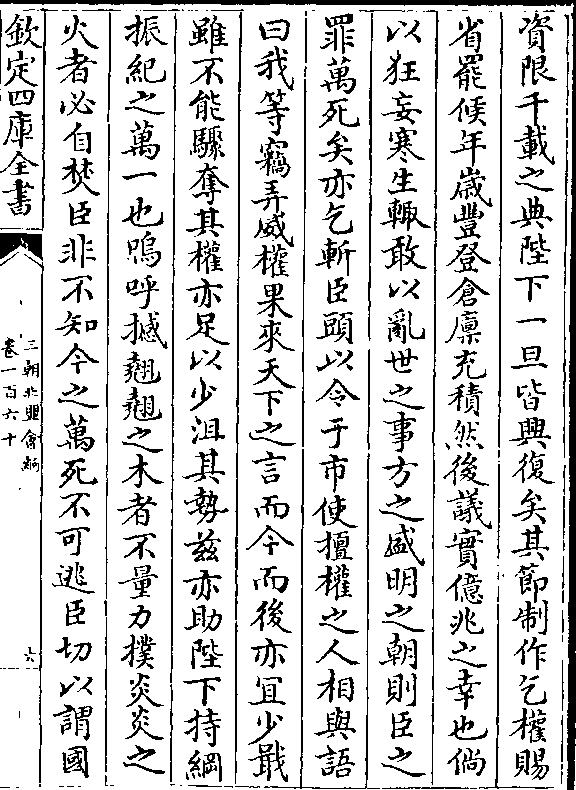 資限千載之典陛下一旦皆興復矣其節制作乞權賜
省罷候年歳豐登倉廩充積然後議實億兆之幸也倘
以狂妄寒生輙敢以亂世之事方之盛明之朝則臣之
罪萬死矣亦乞斬臣頭以令于市使擅權之人相與語
曰我等竊弄威權果來天下之言而今而後亦宜少戢
雖不能驟奪其權亦足以少沮其勢兹亦助陛下持綱
振紀之萬一也嗚呼撼翹翹之木者不量力撲炎炎之
火者必自焚臣非不知今之萬死不可逃臣切以謂國
欽定四庫全書
三朝北盟會編
卷一百六十
六